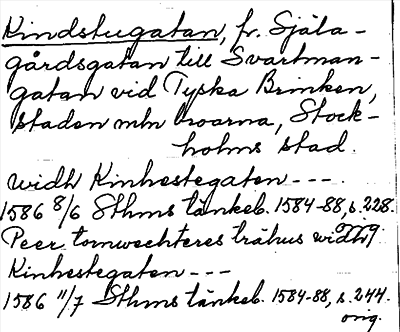 Kindstugatan, fr. Själa-
gårdsgatan till Svartman-
gatan vid Tyska Brinken,
staden mln broarna, Stock-
holms stad.
widh Kinhestegaten ---
1586 8/6 Sthms tänkeb. 1584-88, s. 228.
Peer tornwechteres trähus widh
Kinhestegaten ---
1586 11/7 Sthms tänkeb. 1584-88, s. 244.
orig.